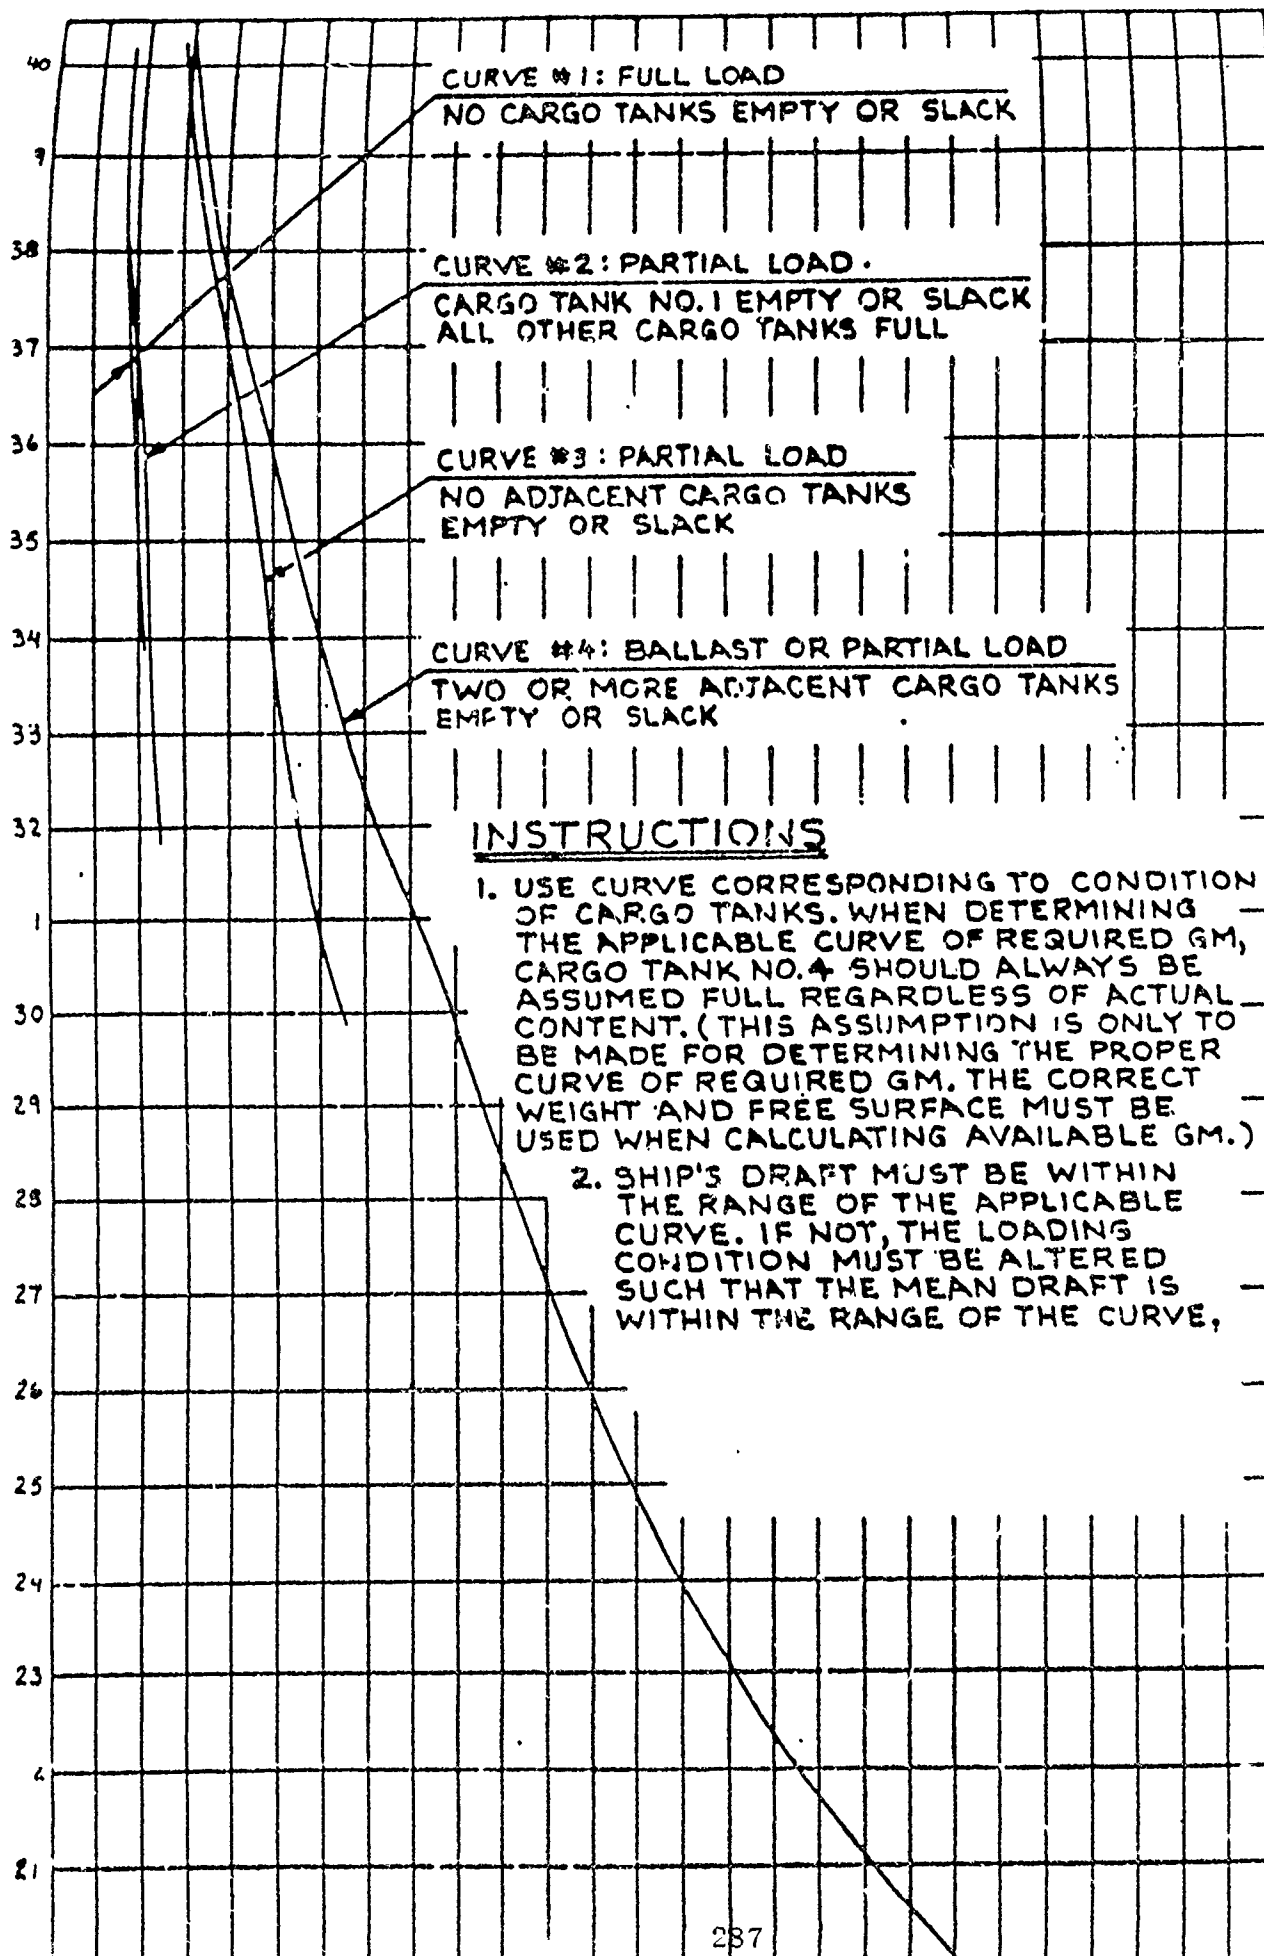 40
CURVE #1: FULL LOAD
NO CARGO TANKS EMPTY OR SLACK
9
38
CURVE #2: PARTIAL LOAD.
CARGO TANK NO. 1 EMPTY OR SLACK
ALL OTHER CARGO TANKS FULL
37
36
CURVE #3: PARTIAL LOAD
NO ADJACENT CARGO TANKS
EMPTY OR SLACK
35
34
CURVE #4: BALLAST OR PARTIAL LOAD
TWO OR MORE ADJACENT CARGO TANKS
EMPTY OR SLACK
33
32
INSTRUCTIONS
1. USE CURVE CORRESPONDING TO CONDITION
OF CARGO TANKS. WHEN DETERMINING
THE APPLICABLE CURVE OF REQUIRED GM,
CARGO TANK NO. 4 SHOULD ALWAYS BE
ASSUMED FULL REGARDLESS OF ACTUAL
CONTENT. (THIS ASSUMPTION IS ONLY TO
BE MADE FOR DETERMINING THE PROPER
CURVE OF REQUIRED GM. THE CORRECT
WEIGHT AND FREE SURFACE MUST BE
USED WHEN CALCULATING AVAILABLE GM.)
1
30
29
2. SHIP'S DRAFT MUST BE WITHIN
THE RANGE OF THE APPLICABLE
CURVE. IF NOT, THE LOADING
CONDITION MUST BE ALTERED
SUCH THAT THE MEAN DRAFT IS
WITHIN THE RANGE OF THE CURVE,
28
27
26
25
24
23
21
287